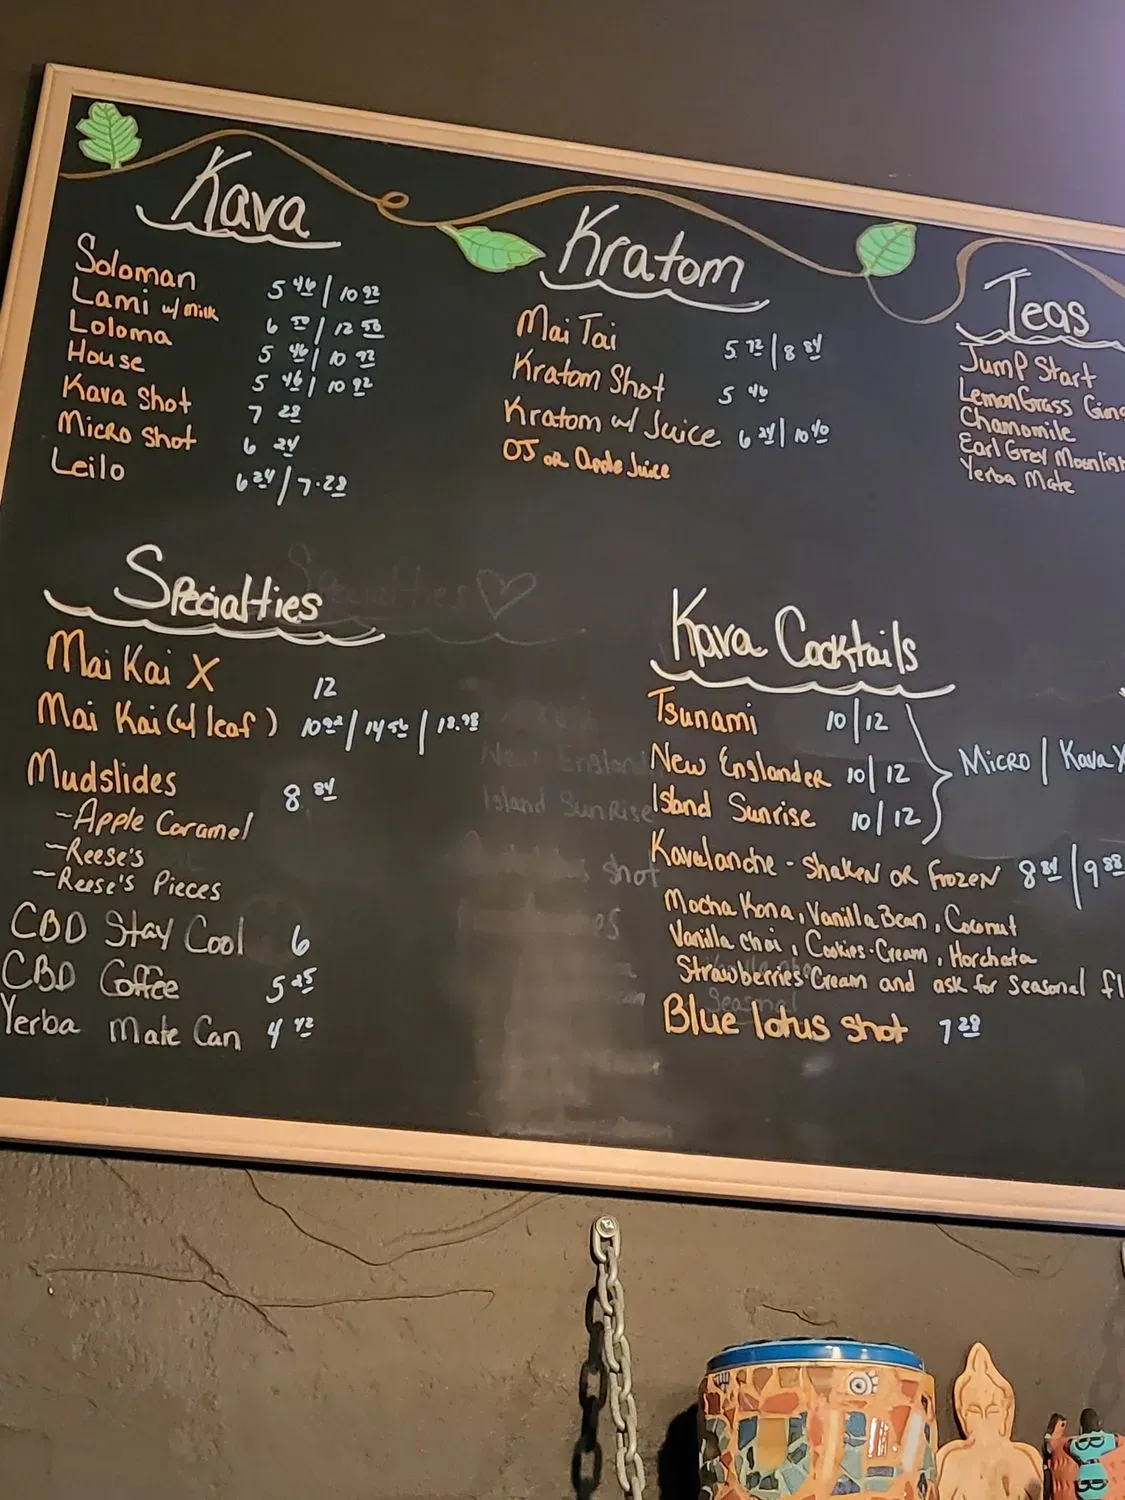 Kava
Soloman 5 46 | 10 92
Lami w/ milk 6 50 | 12 50
Loloma 5 46 | 10 92
House 5 46 | 10 92
Kava Shot 7 28
Micro Shot 6 24
Leilo 6 24 / 7.28
Kratom
Mai Tai 5 72 | 8 84
Kratom Shot 5 46
Kratom w/ Juice 6 24 | 10 40
OJ or Apple Juice
Teas
Jump Start
LemonGrass
Chamomile
Earl Grey
Yerba Mate
Specialties
Mai Kai X 12
Mai Kai (w/ leaf) 10 92 | 14 56 | 18.98
Mudslides 8 84
- Apple Caramel
- Reese's
- Reese's Pieces
CBD Stay Cool 6
CBD Coffee 5 25
Yerba Mate Can 4 42
Kava Cocktails
Tsunami 10 | 12
New Englander 10 | 12
Island Sunrise 10 | 12
Micro | Kava
Kavalanche - Shaken or Frozen 8 84 | 9 88
Mocha Kona, Vanilla Bean, Coconut
Vanilla chai, Cookies-Cream, Horchata
Strawberries Cream and ask for Seasonal
Blue lotus shot 7 28